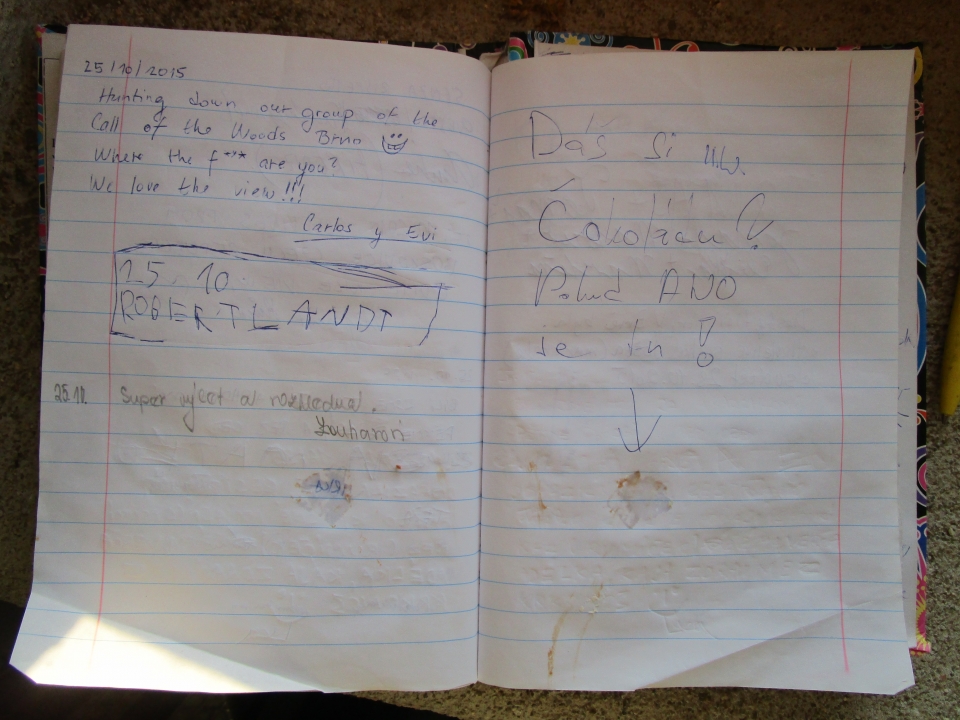 25/10/2015
Hunting down our group of the
Call of the Woods Brno
Where the f*** are you?
We love the view!!!
Carlos y Evi
25.10.
ROBERT LANDT
25.10. Super výlet a rozhledna.
Zouharovi
Dáš si
Čokoládu?
Pokud ANO
je tu!